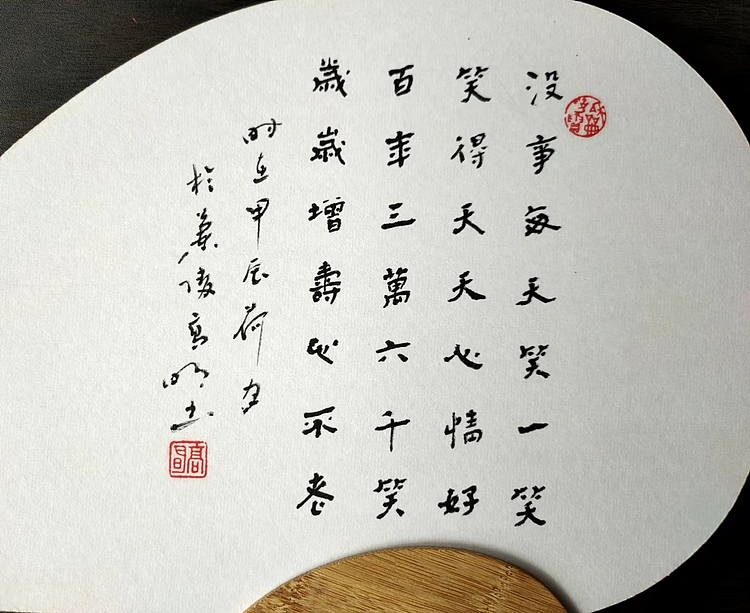 没事每天笑一笑
笑得天天心情好
百年三萬六千笑
歲歲增壽心不老
時在甲辰荷月
於蘭陵高明書